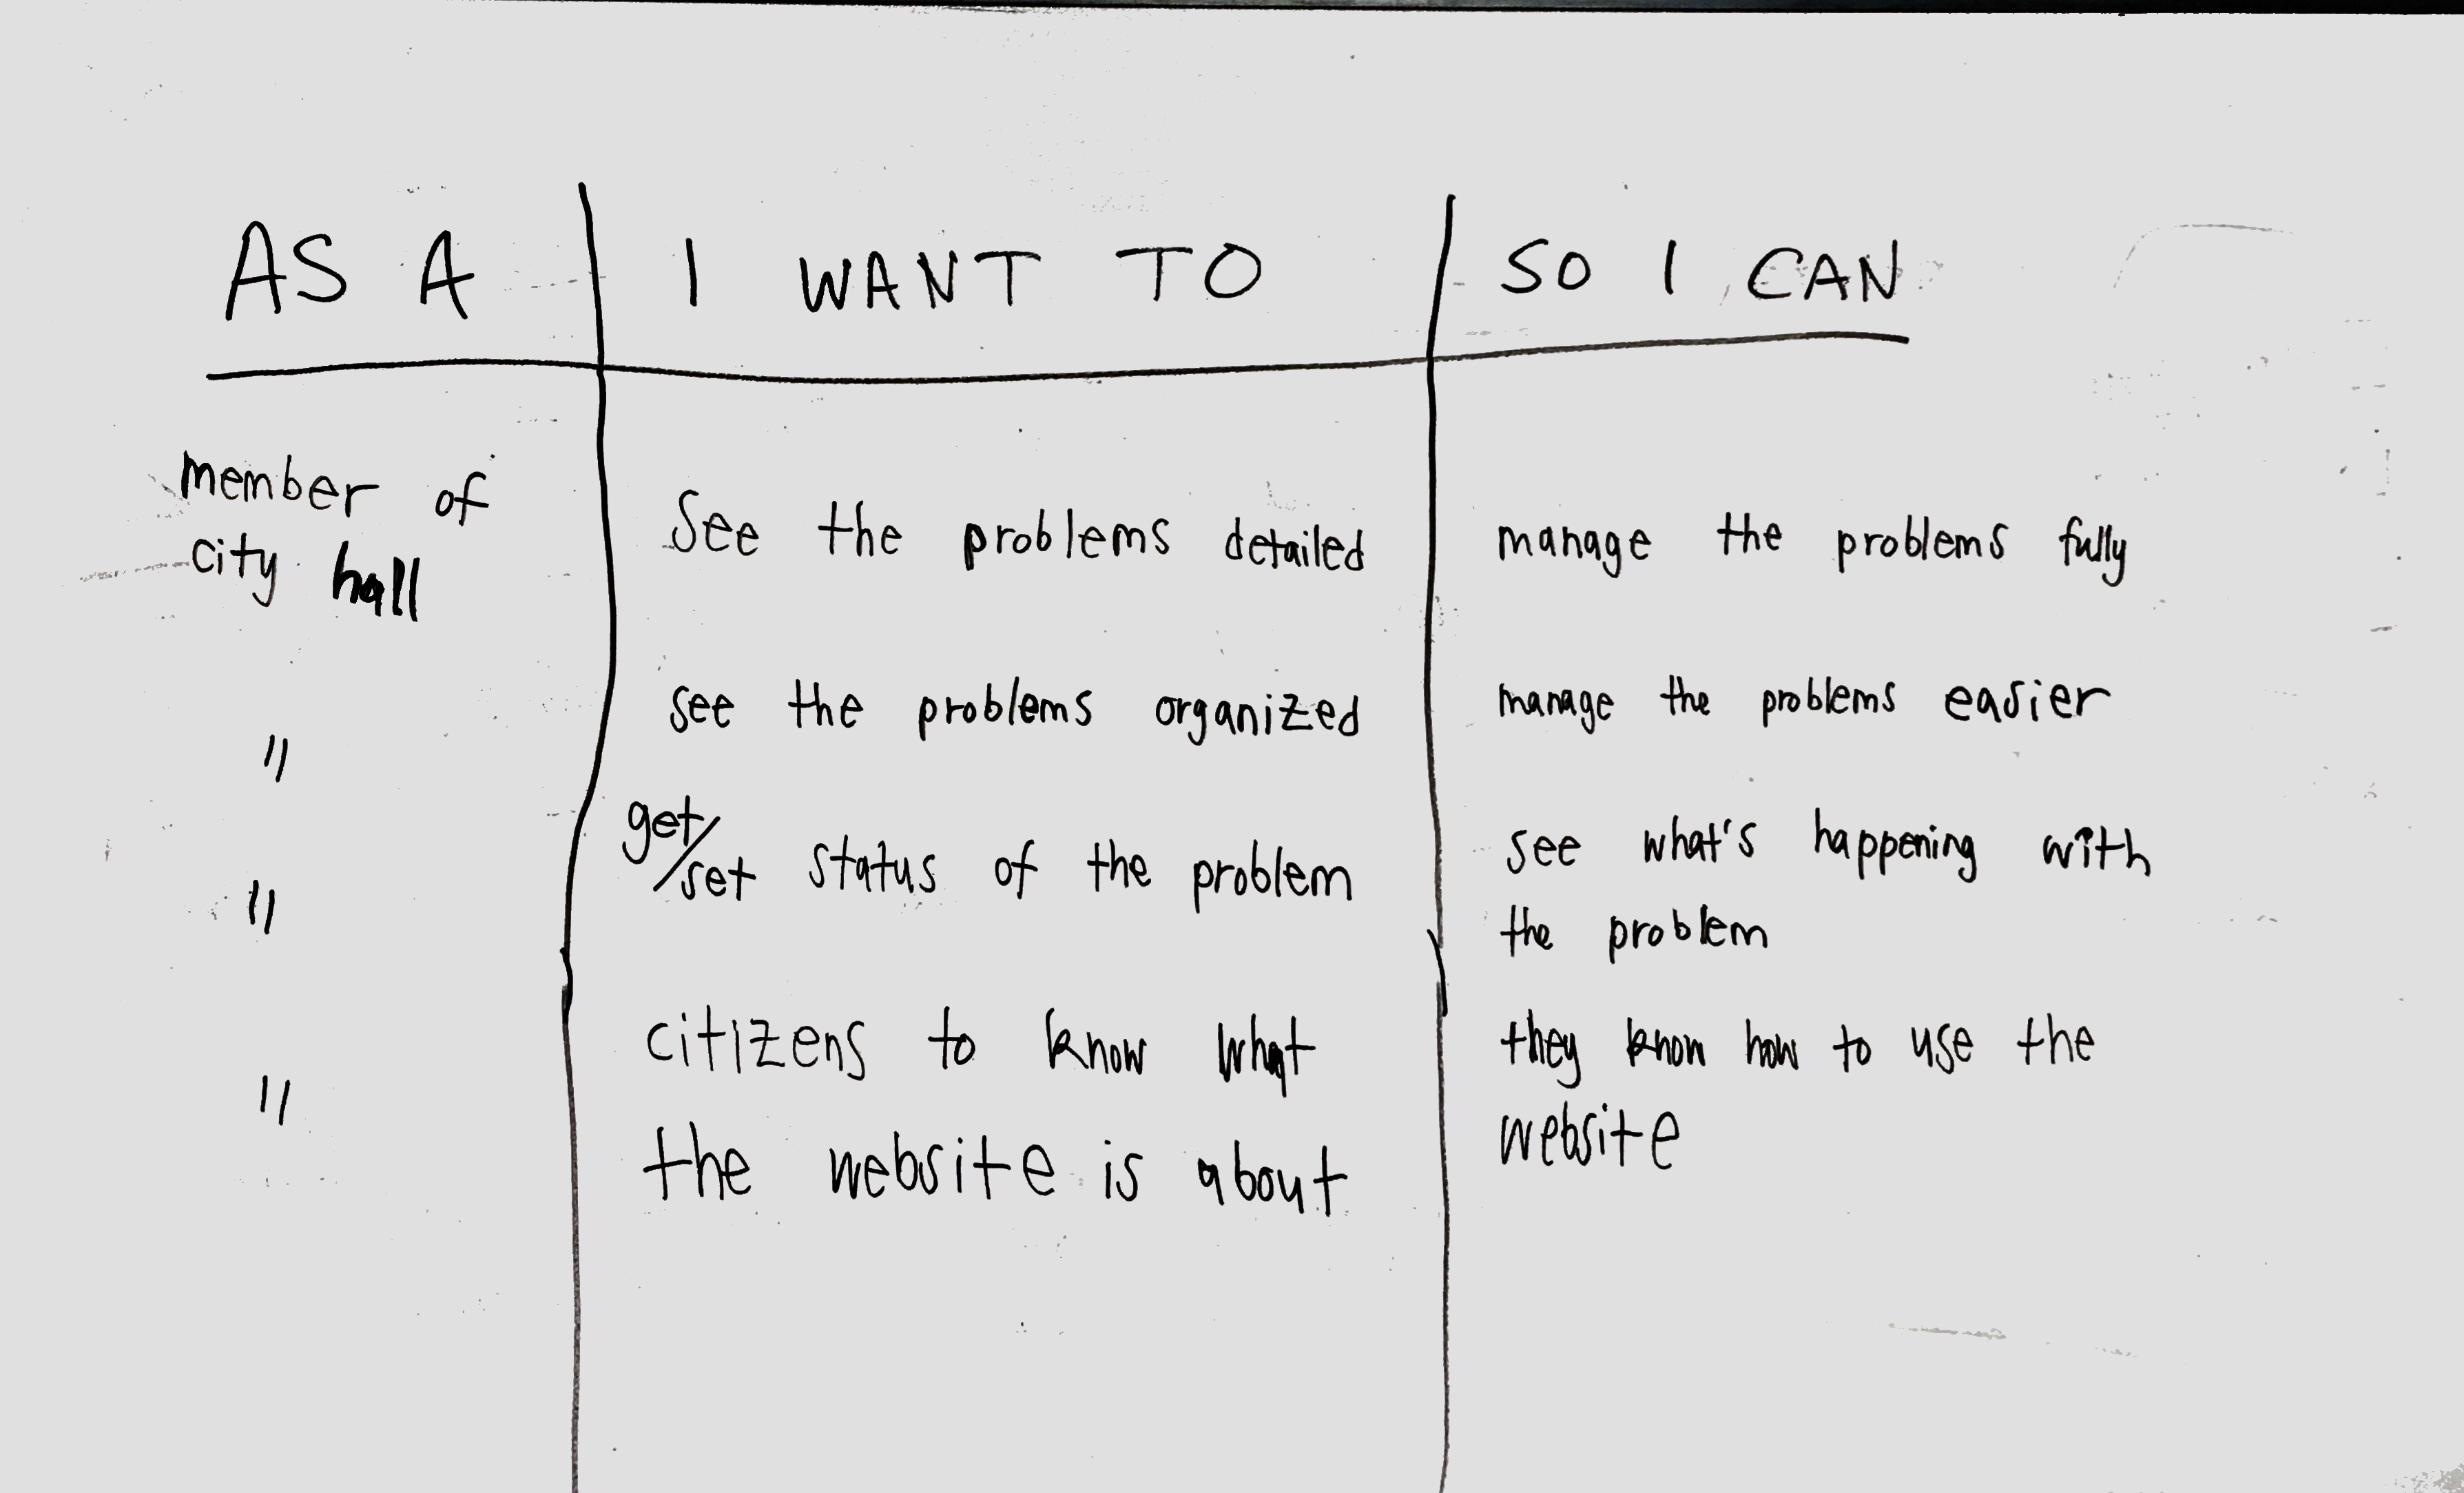 AS A I WANT TO SO I CAN
member of
city hall
see the problems detailed
manage the problems fully
"
see the problems organized
manage the problems easier
"
get/set status of the problem
see what's happening with
the problem
"
citizens to know what
the website is about
they know how to use the
website